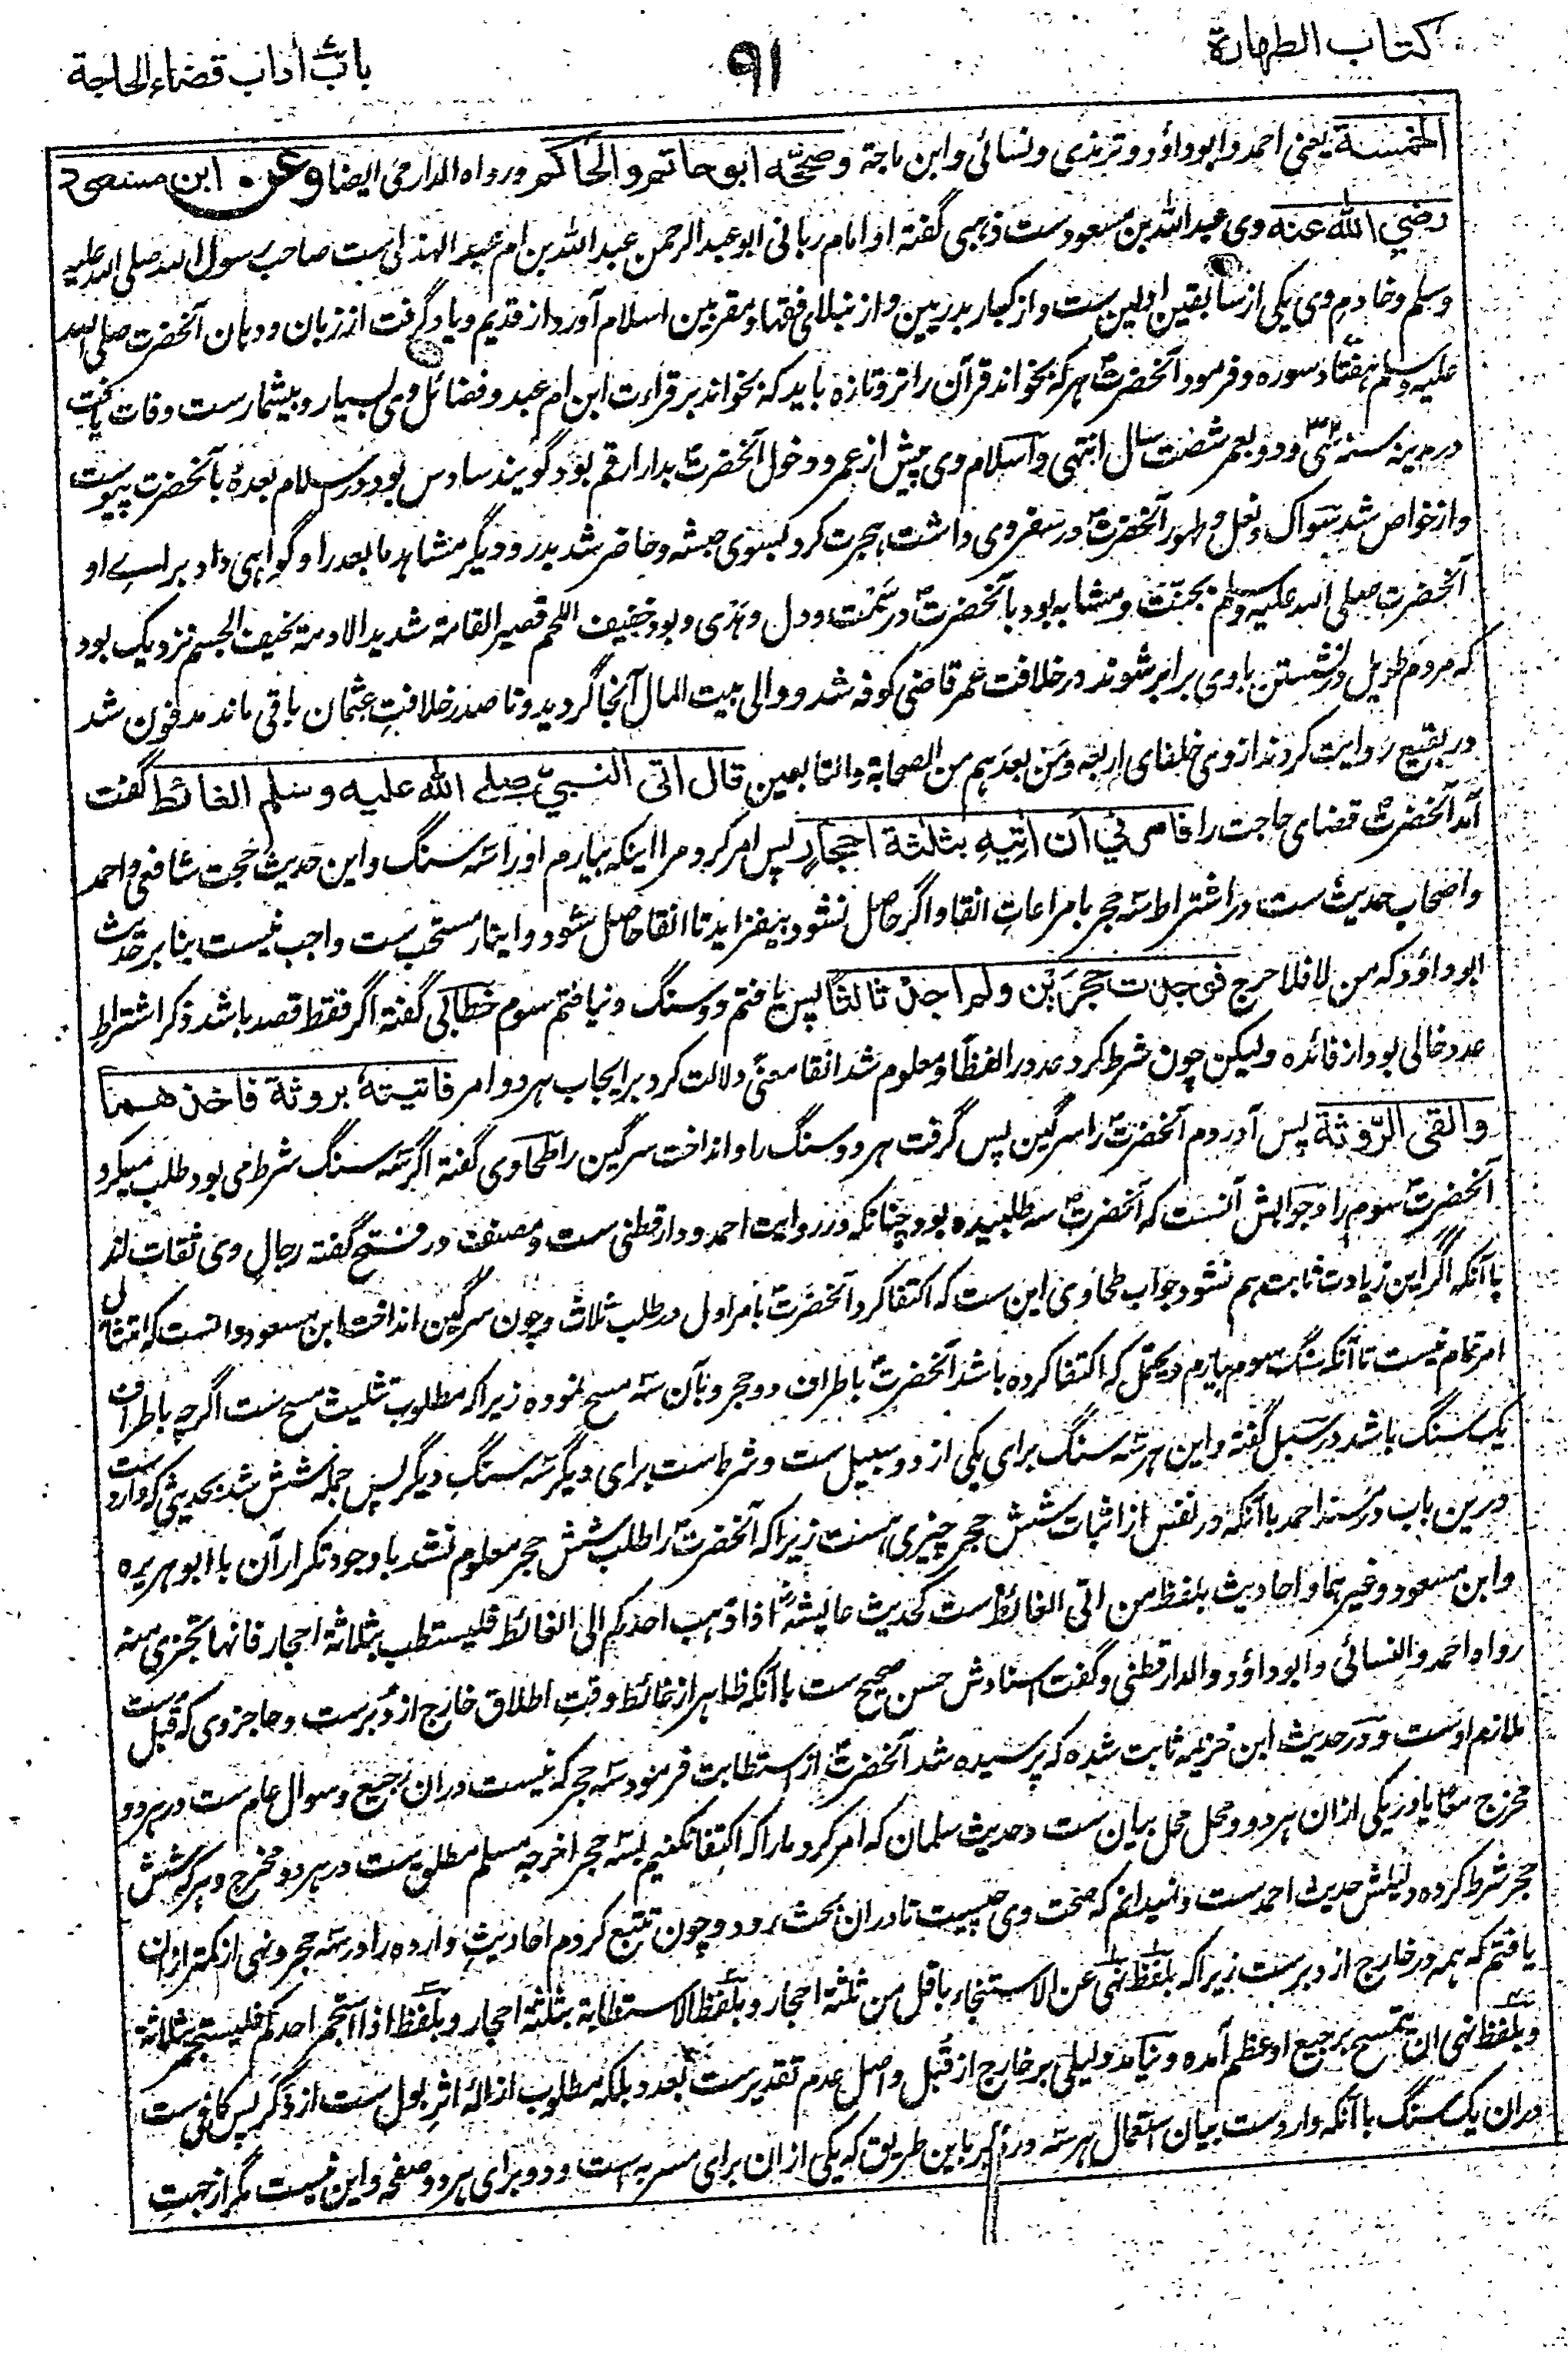 کتاب الطهارة
۹۱
باب أداب قضاء الحاجة
الخمسة یعنی احمد و ابو داؤد و ترمذی و نسائی و ابن ماجة وصححه ابو حاتم والحاکم و رواه الدارمی ایضا وعن ابن مسعود
رضي الله عنه وی عبد الله بن مسعودست ذهبی گفته او امام ربانی ابو عبد الرحمن عبد الله بن ام عبد الهذلی است صاحب رسول الله صلی الله علیه
وسلم و خادم وی یکی از سابقین اولین ست و از کبار بدریین و از نبلای فقها و مقربین اسلام آورد از قدیم و یاد گرفت از زبان و دهان آنحضرت صلی الله
علیه وسلم هفتاد سوره و فرمود آنحضرتؐ هر که بخواند قرآن را تر و تازه باید که بخواند بر قراءت ابن ام عبد و فضائل وی بسیار و بیشمارست وفات یافت
در مدینه سنه سی و دو بعمر شصت سال انتهی و اسلام وی پیش از عمر و دخول آنحضرتؐ بدار ارقم بود گویند سادس بود در اسلام بعده بآنحضرت پیوست
و از خواص شد سواک و نعل و طهور آنحضرتؐ در سفر وی داشت هجرت کرد بسوی حبشه و حاضر شد بدر و دیگر مشاهد ما بعد را و گواهی داد برای او
آنحضرت صلی الله علیه وسلم بجنت و مشابه بود بآنحضرتؐ در سمت و دل و هدی و بود خفیف اللحم قصیر القامة شدید الادمة نحیف الجسم نزدیک بود
که مردم طویل در نشستن با وی برابر شوند در خلافت عمر قاضی کوفه شد و والی بیت المال آنجا گردید و تا صدر خلافت عثمان باقی ماند مدفون شد
در بقیع روایت کردند از وی خلفای اربعه و من بعدهم من الصحابة والتابعین قال اتی النبيّ صلے الله علیه وسلم الغائط گفت
آمد آنحضرتؐ قضای حاجت را فامرني ان اٰتیه بثلثة احجار پس امر کرد مرا اینکه بیارم او را سه سنگ و این حدیث حجت شافعی و احمد
و اصحاب حدیث ست در اشتراط سه حجر با مراعات انقا و اگر حاصل نشود بیفزاید تا انقا حاصل شود و ایتار مستحب ست واجب نیست بنا بر حدیث
ابو داؤد که من لا فلا حرج فوجدت حجرین ولم اجد ثالثا پس یافتم دو سنگ و نیافتم سوم خطابی گفته اگر فقط قصد باشد ذکر اشتراط
عدد خالی بود از فائده و لیکن چون شرط کرد عدد را لفظاً و معلوم شد انقا معنیً دلالت کرد بر ایجاب هر دو امر فاتیته بروثة فاخذهما
والقی الرّوثة پس آوردم آنحضرتؐ را سرگین پس گرفت هر دو سنگ را و انداخت سرگین را طحاوی گفته اگر سه سنگ شرط می بود طلب میکرد
آنحضرتؐ سوم را و جوابش آنست که آنحضرتؐ سه طلبیده بود چنانکه در روایت احمد و دارقطنی ست و مصنف در فتح گفته رجال وی ثقات اند
با آنکه اگر این زیادت ثابت هم نشود جواب طحاوی این ست که اکتفا کرد آنحضرتؐ بامر اول در طلب ثلاث و چون سرگین انداخت ابن مسعود دانست که امتثال
امر تمام نیست تا آنکه سنگ سوم بیارم و یحتمل که اکتفا کرده باشد آنحضرتؐ باطراف دو حجر و بآن سه مسح نموده زیرا که مطلوب تثلیث مسح ست اگرچه باطراف
یک سنگ باشد در سبل گفته و این هر سه سنگ برای یکی از دو سبیل ست و شرط ست برای دیگر سه سنگ دیگر پس جمله شش شد بحدیثی که وارد ست
درین باب در مسند احمد با آنکه در نفس از اثبات شش حجر چیزی هست زیرا که آنحضرتؐ را طلب شش حجر معلوم نشد با وجود تکرار آن با ابو هریره
و ابن مسعود و غیرهما و احادیث بلفظ من اتی الغائط ست کحدیث عائشه اذا ذهب احدکم الی الغائط فلیستطب بثلاثة احجار فانها تجزی منه
رواه احمد والنسائی و ابو داؤد والدارقطنی و گفت اسنادش حسن صحیح ست با آنکه ظاهر از غائط وقت اطلاق خارج از دُبرست و حاجز وی که قبل ست
ملازم اوست و در حدیث ابن خزیمه ثابت شده که پرسیده شد آنحضرتؐ از استطابت فرمود سه حجر که نیست دران رجیع و سوال عام ست در هر دو
مخرج معاً یا در یکی ازان هر دو و محل محل بیان ست و حدیث سلمان که امر کرد ما را که اکتفا نکنیم بسه حجر اخرجه مسلم مطلق ست در هر دو مخرج و هر که شش
حجر شرط کرده دلیلش حدیث احمد ست و نمیدانم که صحت وی چیست تا دران بحث رود و چون تتبع کردم احادیث وارده را در سه حجر و نهی از کمتر ازان
یافتم که همه در خارج از دبرست زیرا که بلفظ نهی عن الاستنجاء باقل من ثلثة احجار و بلفظ الاستطابة بثلثة احجار و بلفظ اذا استجمر احدکم فلیستجمر بثلاثة
و بلفظ نهی ان یتمسح برجیع او عظم آمده و نیامد دلیلی بر خارج از قُبل و اصل عدم تقدیرست بعدد بلکه مطلوب ازالهٔ اثر بول ست از ذکر پس کافی ست
دران یک سنگ با آنکه وارد ست بیان استعمال هر سه در دُبر باین طریق که یکی ازان برای مسربه است و دو برای هر دو صفحه و این نیست مگر از جهت